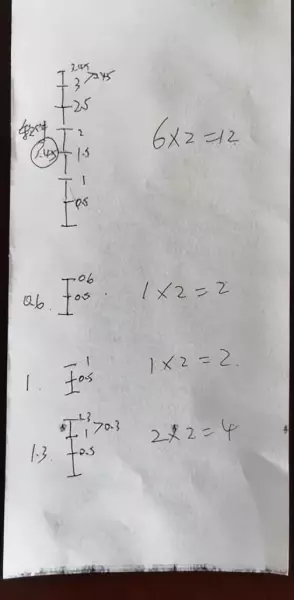 3 >0.45
2.5
2
1.5 6×2=12
1
0.5
0.6 0.6
0.5 1×2=2
1. 1
0.5 1×2=2.
1.3 1.3
1 >0.3
0.5 2×2=4